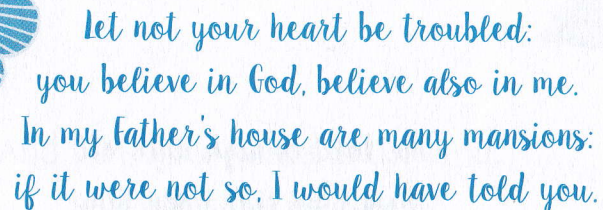 Let not your heart be troubled:
you believe in God, believe also in me.
In my Father's house are many mansions:
if it were not so, I would have told you.